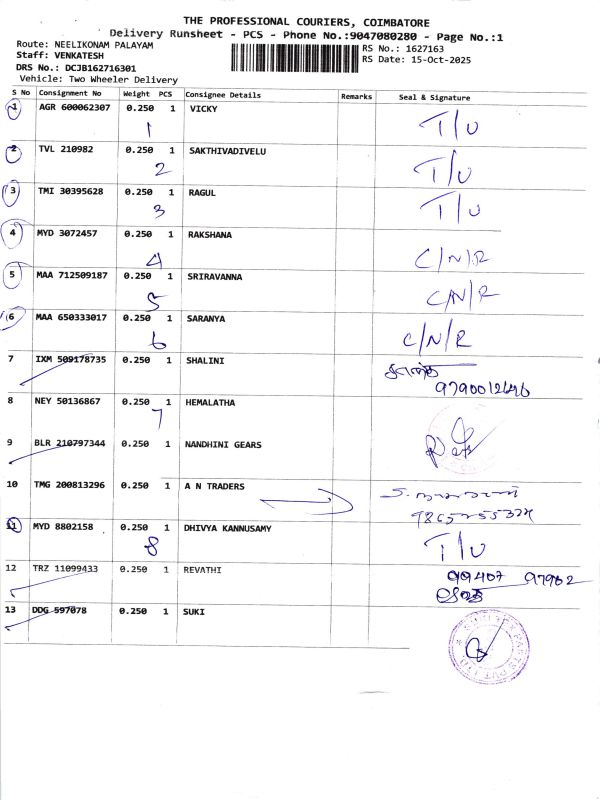 THE PROFESSIONAL COURIERS, COIMBATORE
Delivery Runsheet - PCS - Phone No.:9047080280 - Page No.:1
Route: NEELIKONAM PALAYAM
Staff: VENKATESH
DRS No.: DCJB162716301
Vehicle: Two Wheeler Delivery
RS No.: 1627163
RS Date: 15-Oct-2025
S No Consignment No Weight PCS Consignee Details Remarks Seal & Signature
1 AGR 600062307 0.250 1 VICKY T/U
1
2 TVL 210982 0.250 1 SAKTHIVADIVELU T/U
2
3 TMI 30395628 0.250 1 RAGUL T/U
3
4 MYD 3072457 0.250 1 RAKSHANA C/N/R
4
5 MAA 712509187 0.250 1 SRIRAVANNA C/N/R
5
6 MAA 650333017 0.250 1 SARANYA C/N/R
6
7 IXM 509178735 0.250 1 SHALINI
9790012646
8 NEY 50136867 0.250 1 HEMALATHA
7
9 BLR 210797344 0.250 1 NANDHINI GEARS
10 TMG 200813296 0.250 1 A N TRADERS
11 MYD 8802158 0.250 1 DHIVYA KANNUSAMY T/U
8
12 TRZ 11099433 0.250 1 REVATHI 99407 97902
13 DDG 597078 0.250 1 SUKI